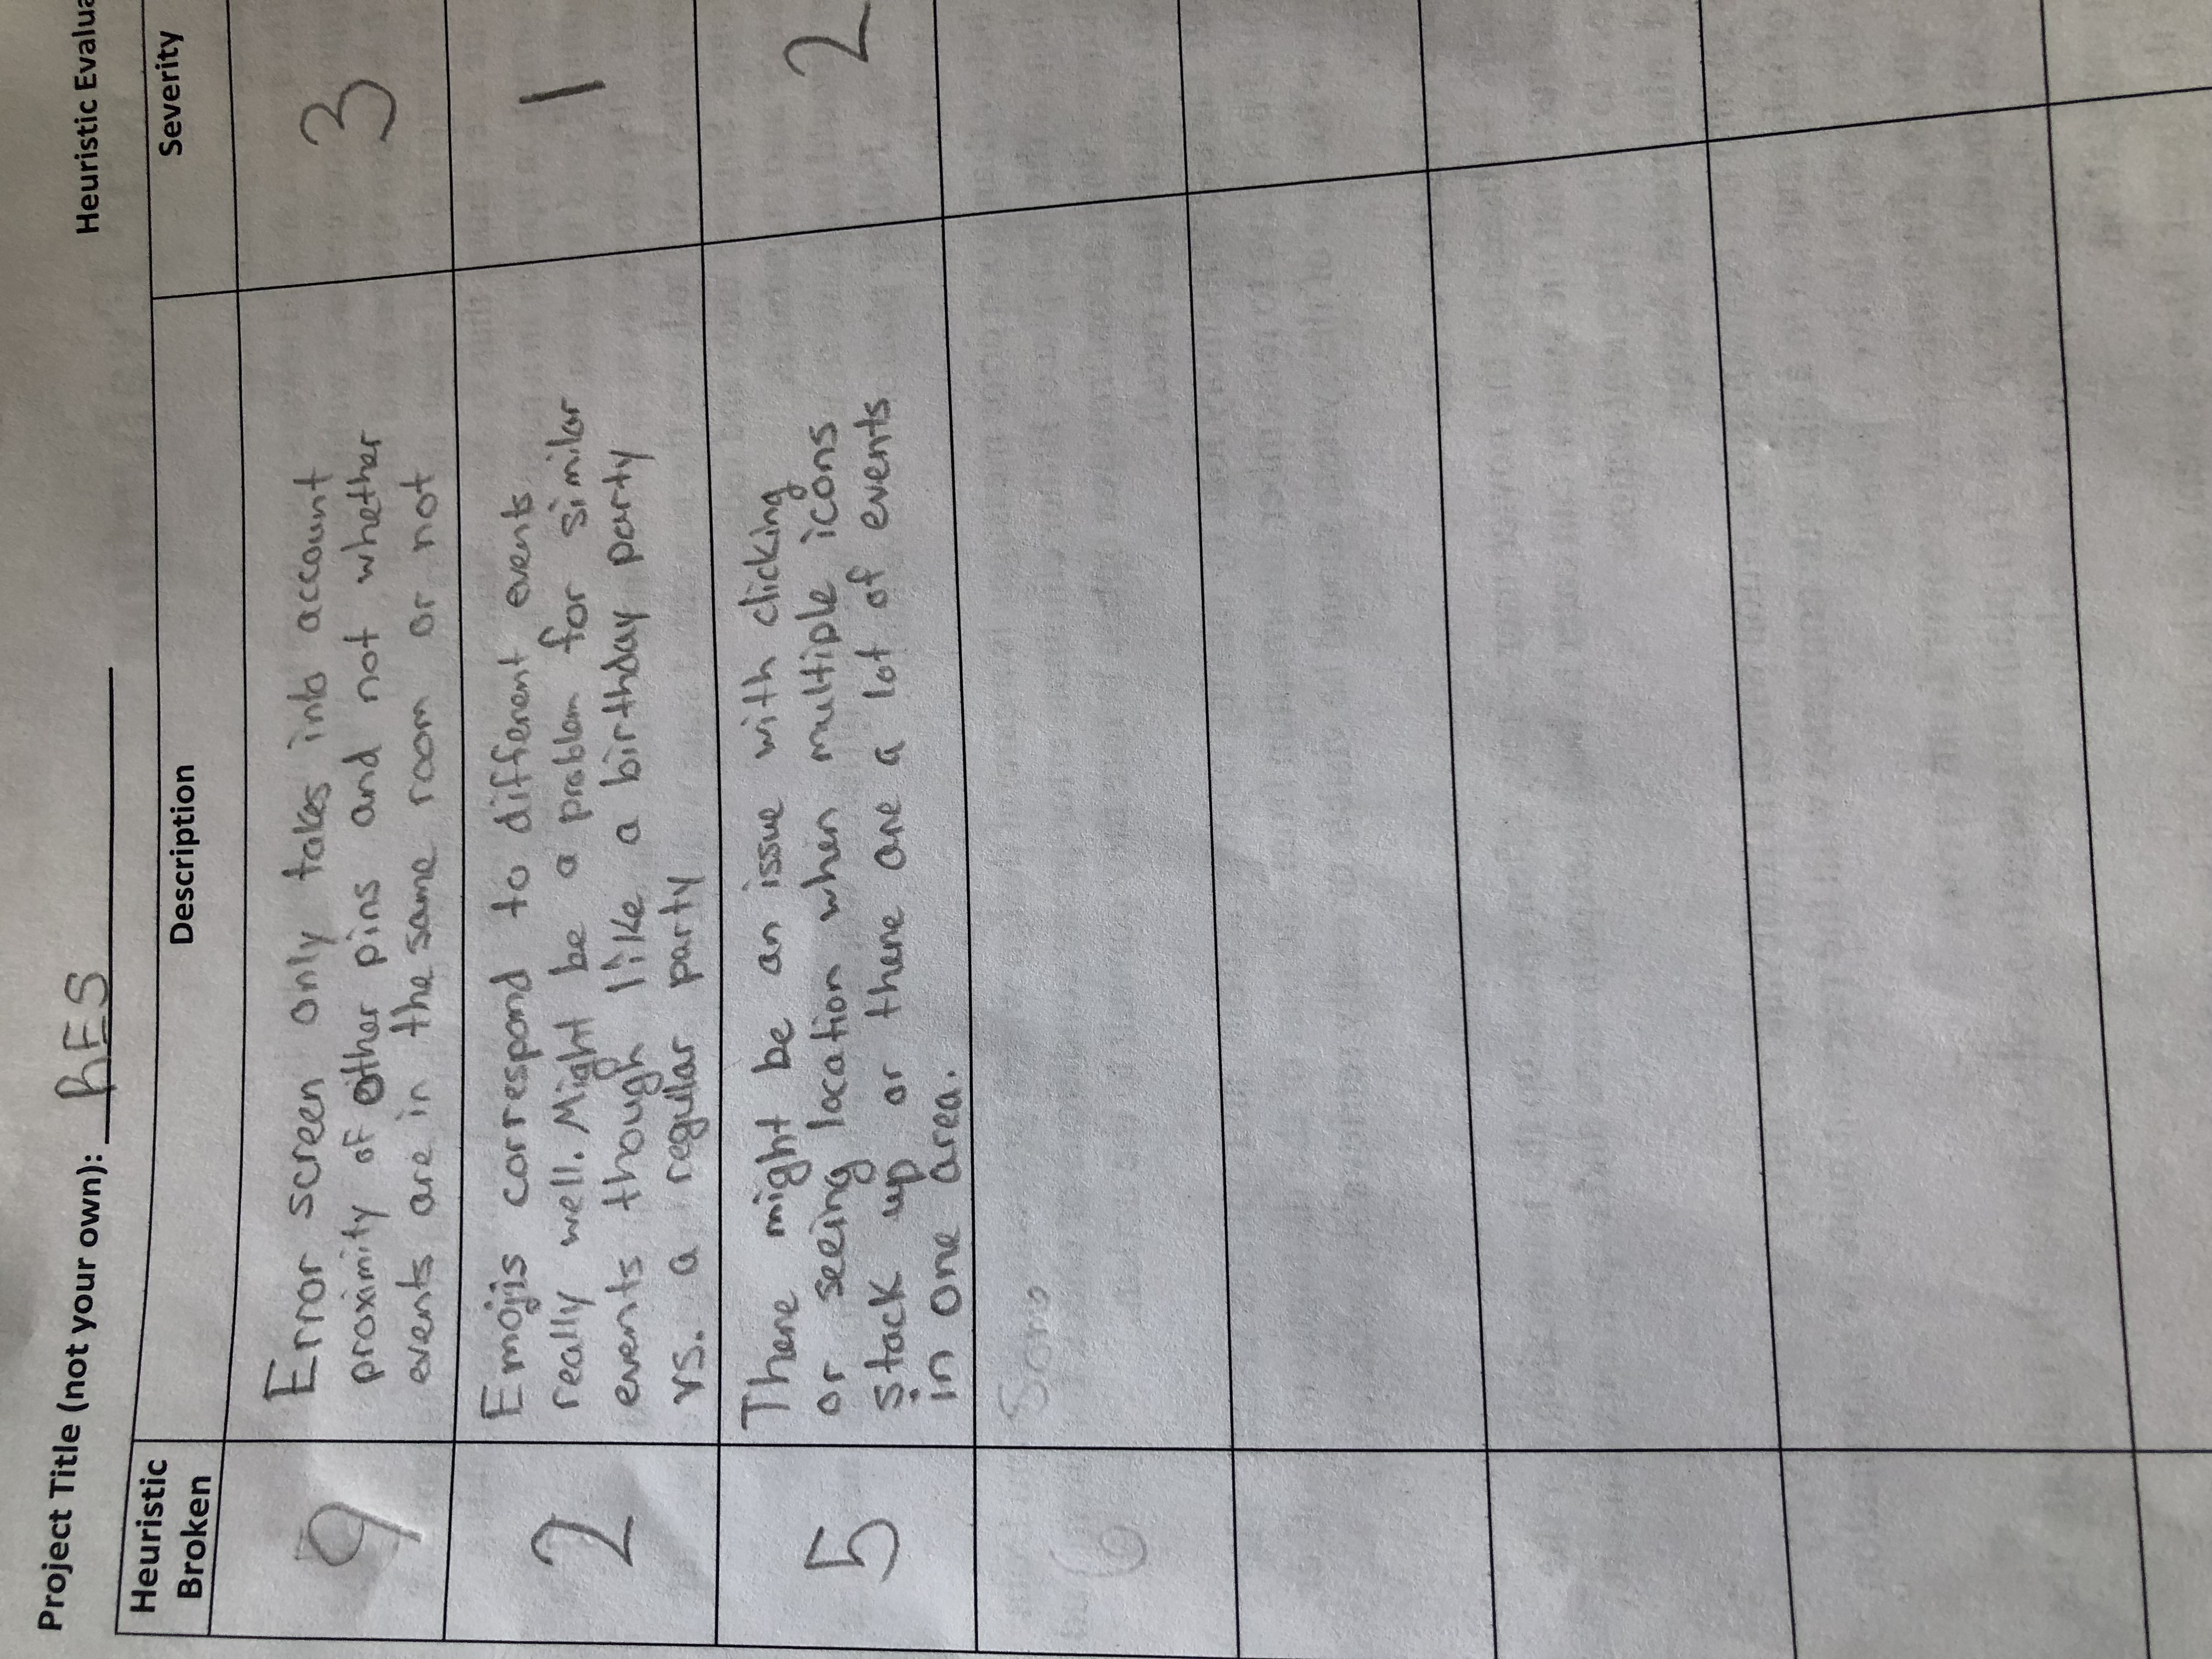 Project Title (not your own): RES
Heuristic Evalua
Heuristic
Broken
Description
Severity
9
Error screen only takes into account
proximity of other pins and not whether
events are in the same room or not
3
2
Emojis correspond to different events
really well. Might be a problem for similar
events though like a birthday party
vs. a regular party
1
5
There might be an issue with clicking
or seeing location when multiple icons
stack up or there are a lot of events
in one area.
2
6
Some